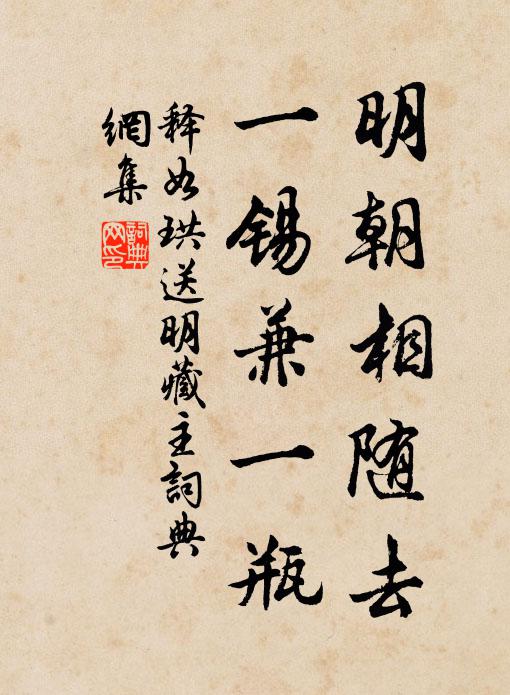 明朝相随去
一锡兼一瓶
释如珙送明藏主詞典
網集
詞典网印